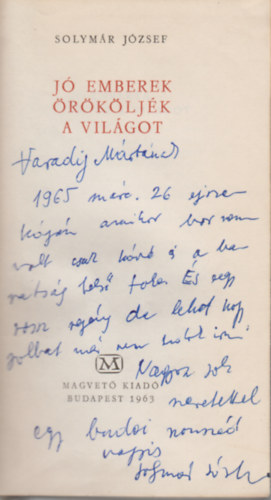 SOLYMÁR JÓZSEF
JÓ EMBEREK
ÖRÖKÖLJÉK
A VILÁGOT
Varadij Mártának
1965 márc. 26 éjsza-
káján amikor bor nem
volt csak kávé és a ba-
rátság felső foka És egy
rossz regény de lehet hogy
jobbat már nem tudok írni
Nagyon sok
MAGVETŐ KIADÓ
BUDAPEST 1963
szeretettel
egy budai